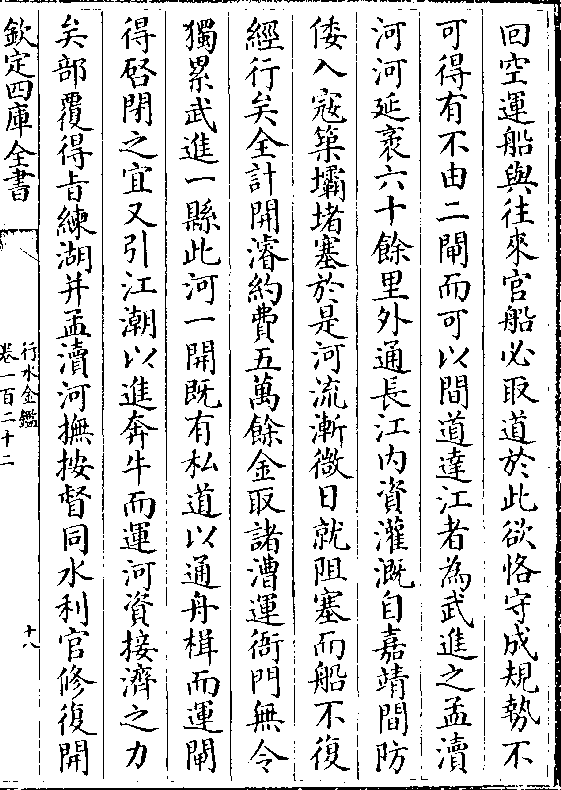 回空運船與往來官船必取道於此欲恪守成規勢不
可得有不由二閘而可以間道達江者為武進之孟瀆
河河延袤六十餘里外通長江内資灌溉自嘉靖間防
倭入宼築壩堵塞於是河流漸微日就阻塞而船不復
經行矣全計開濬約費五萬餘金取諸漕運衙門無令
獨累武進一縣此河一開既有私道以通舟楫而運閘
得啓閉之宜又引江潮以進奔牛而運河資接濟之力
矣部覆得㫖練湖并孟瀆河撫按督同水利官修復開
欽定四庫全書
行水金鑑
卷一百二十二
十八